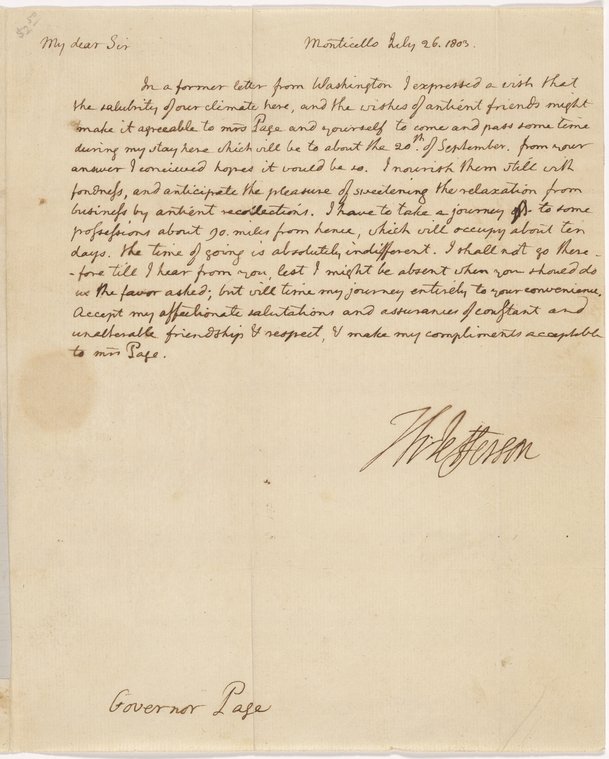 $2.50
My dear Sir Monticello July 26. 1803.
In a former letter from Washington I expressed a wish that
the salubrity of our climate here, and the wishes of antient friends might
make it agreeable to mrs Page and yourself to come and pass some time
during my stay here which will be to about the 20th. of September. from your
answer I concieved hopes it would be so. I nourish them still with
fondness, and anticipate the pleasure of sweetening the relaxation from
business by antient recollections. I have to take a journey to some
possessions about 90. miles from hence, which will occupy about ten
days. the time of going is absolutely indifferent. I shall not go there-
-fore till I hear from you, lest I might be absent when you should do
us the favor asked; but will time my journey entirely to your convenience.
Accept my affectionate salutations and assurances of constant and
unalterable friendship & respect, & make my compliments acceptable
to mrs Page.
Th: Jefferson
Governor Page